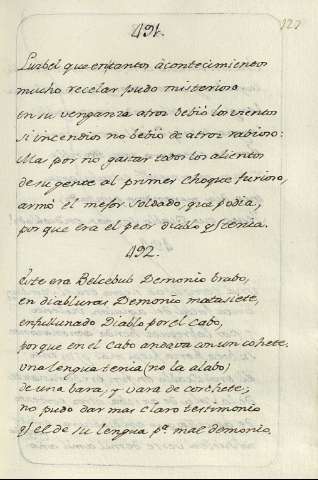 491.
127
Luzbel que en tantos acontecimientos
mucho recelar pudo misterioso
en su venganza atroz bebiò los vientos
si incendios no bebiò de atroz rabioso:
Mas por no gastar todos los alientos
de su gente al primer choque furioso,
armò el mejor soldado, que podia,
por que era el peor diablo q.e tenia.
492.
Este era Belcebub Demonio brabo,
en diabluras Demonio matasiete,
Diablo por el Cabo,
porque en el Cabo andava con un cohete.
una lengua tenia (no la alabo)
de una bara, y vara de corchete;
no pudo dar mas claro testimonio
q.e el de su lengua p.a mal demonio.